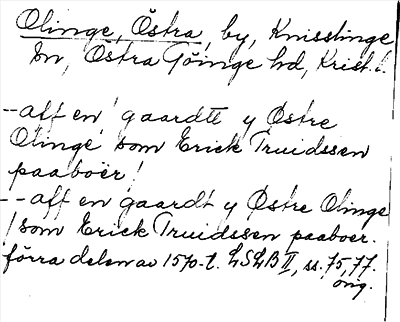 Olinge, Östra, by, Knisslinge
sn, Östra Göinge hd, Krist. l.
-- aff en gaardtt y Østre
Olinge som Erick Truidssen
paaboer!
-- aff en gaardt y Østre Olinge
/ som Erick Truidssen paaboer.
förra delen av 1570-t. LSLB II, ss. 75, 77.
orig.